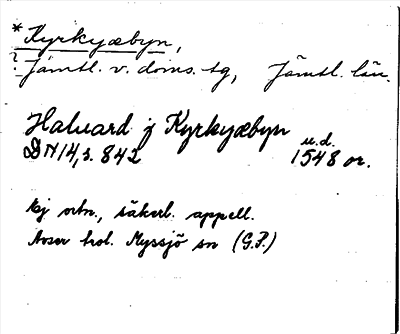 * Kyrkyæbyn,
? Jämtl. v. doms. tg, Jämtl. län.
Halvard j Kyrkyæbyn
u.d.
DN 14, s. 842 1548 or.
Ej ortn., säkerl. appell.
Avser trol. Myssjö sn (G.P.)